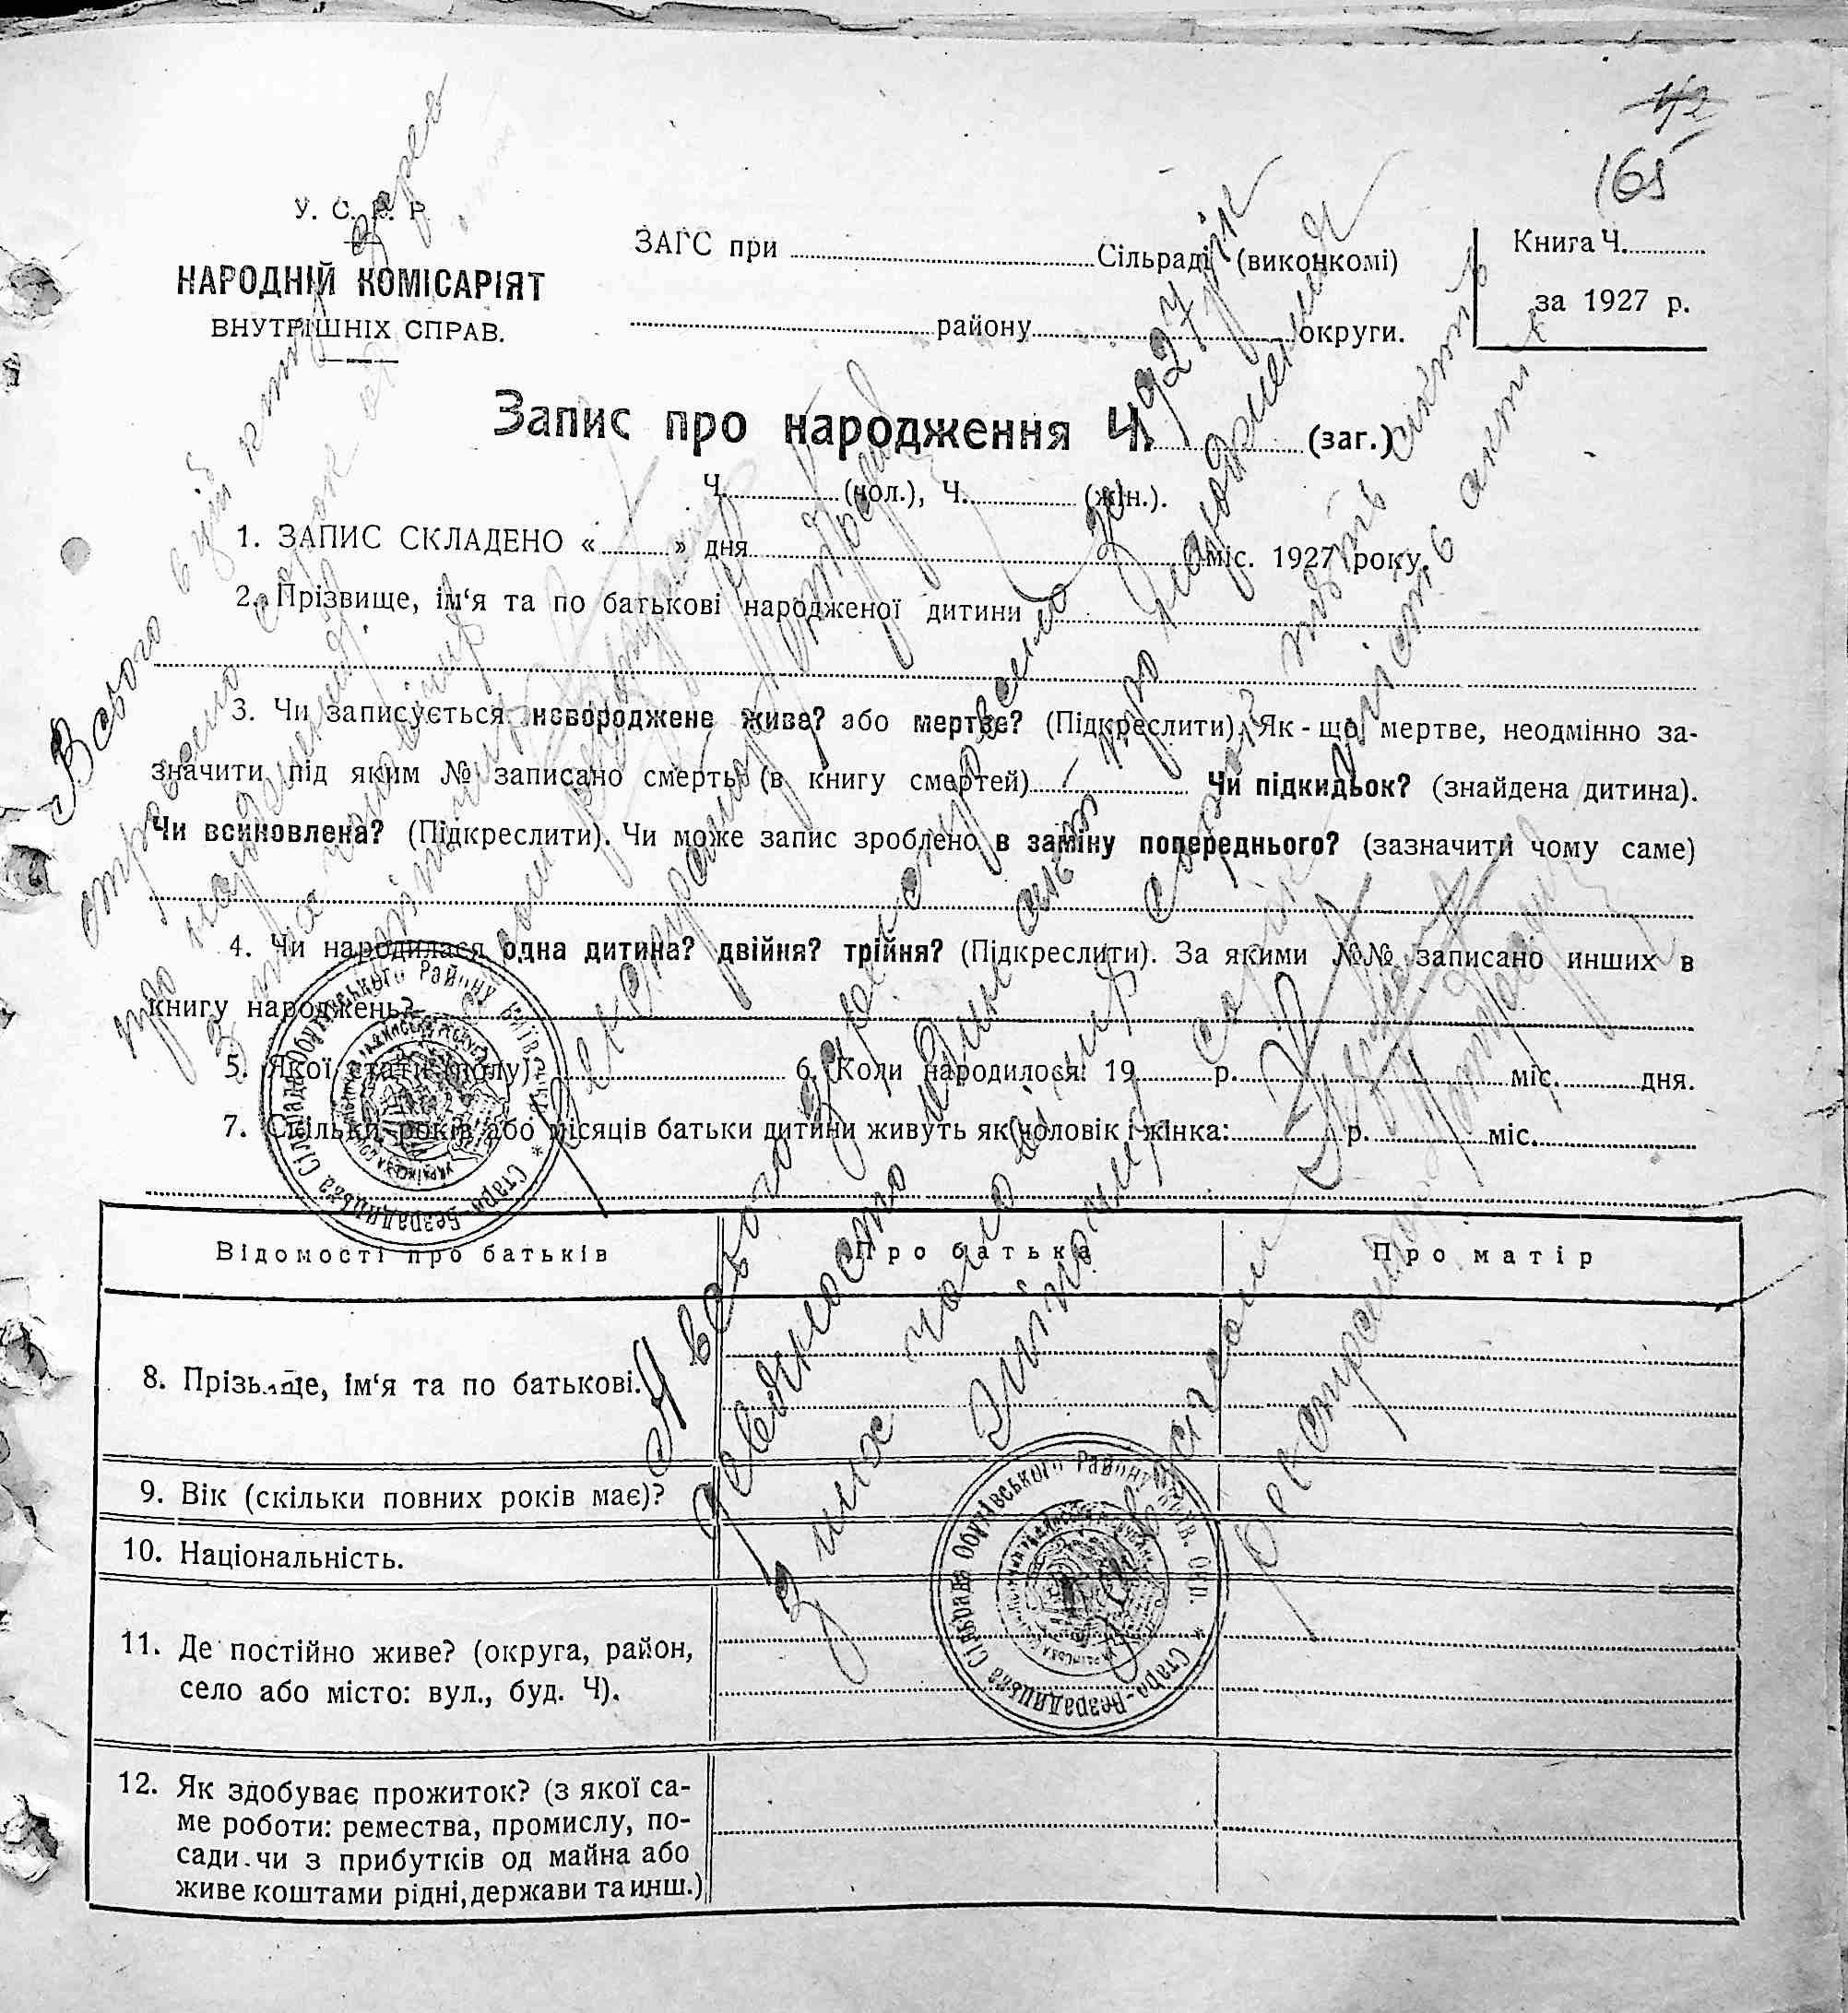 42
165
У. С. Р. Р.
НАРОДНІЙ КОМІСАРІЯТ
ВНУТРІШНІХ СПРАВ.
ЗАГС при Сільраді (виконкомі)
району округи.
Книга Ч.
за 1927 р.
Запис про народження Ч. (заг.)
Ч. (чол.), Ч. (жін.).
1. ЗАПИС СКЛАДЕНО « » дня міс. 1927 року.
2. Прізвище, ім‘я та по батькові народженої дитини
3. Чи записується новороджене живе? або мертве? (Підкреслити). Як-що мертве, неодмінно за-
значити під яким № записано смерть (в книгу смертей) Чи підкидьок? (знайдена дитина).
Чи всиновлена? (Підкреслити). Чи може запис зроблено в заміну попереднього? (зазначити чому саме)
4. Чи народилася одна дитина? двійня? трійня? (Підкреслити). За якими №№ записано инших в
книгу народжень?
5. Якої статі (полу)? 6. Коли народилося: 19 р. міс. дня.
7. Скільки років або місяців батьки дитини живуть як чоловік і жінка: р. міс.
Відомості про батьків Про батька Про матір
8. Прізвище, ім‘я та по батькові.
9. Вік (скільки повних років має)?
10. Національність.
11. Де постійно живе? (округа, район,
село або місто: вул., буд. Ч).
12. Як здобуває прожиток? (з якої са-
ме роботи: ремества, промислу, по-
сади чи з прибутків од майна або
живе коштами рідні, держави та инш.)
Всього в цій книзі
сорок
про народження
з них чоловічих
А всього зареєстровано за 1927 рік
девяносто один акт про народження
з них чоловічих сорок пять актів
жіночих сорок шість актів
Старо-Безрадицька Сільрада Обухівського Району Київ. Окр.
Старо-Безрадицька Сільрада Обухівського Району Київ. Окр.